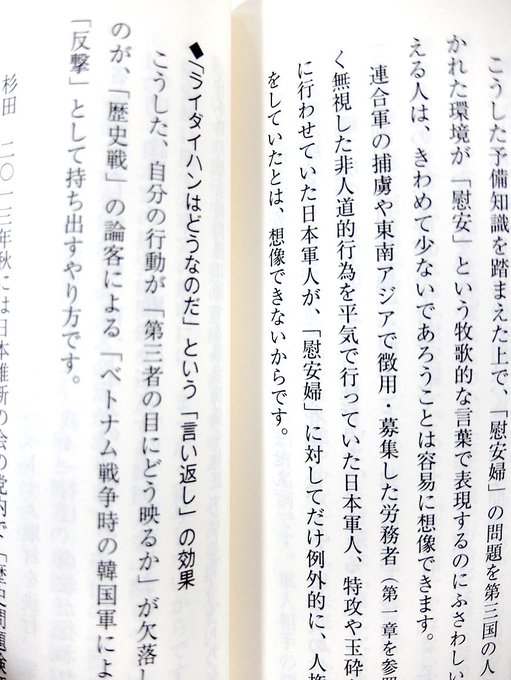 こうした予備知識を踏まえた上で、「慰安婦」の問題を第三国の人
かれた環境が「慰安」という牧歌的な言葉で表現するのにふさわしい
える人は、きわめて少ないであろうことは容易に想像できます。
連合軍の捕虜や東南アジアで徴用・募集した労務者（第一章を参照
く無視した非人道的行為を平気で行っていた日本軍人、特攻や玉砕
に行わせていた日本軍人が、「慰安婦」に対してだけ例外的に、人権
をしていたとは、想像できないからです。
◆「ライダイハンはどうなのだ」という「言い返し」の効果
こうした、自分の行動が「第三者の目にどう映るか」が欠落し
のが、「歴史戦」の論客による「ベトナム戦争時の韓国軍によ
「反撃」として持ち出すやり方です。
杉田 二〇一三年秋には日本維新の会の党内で「歴史問題検